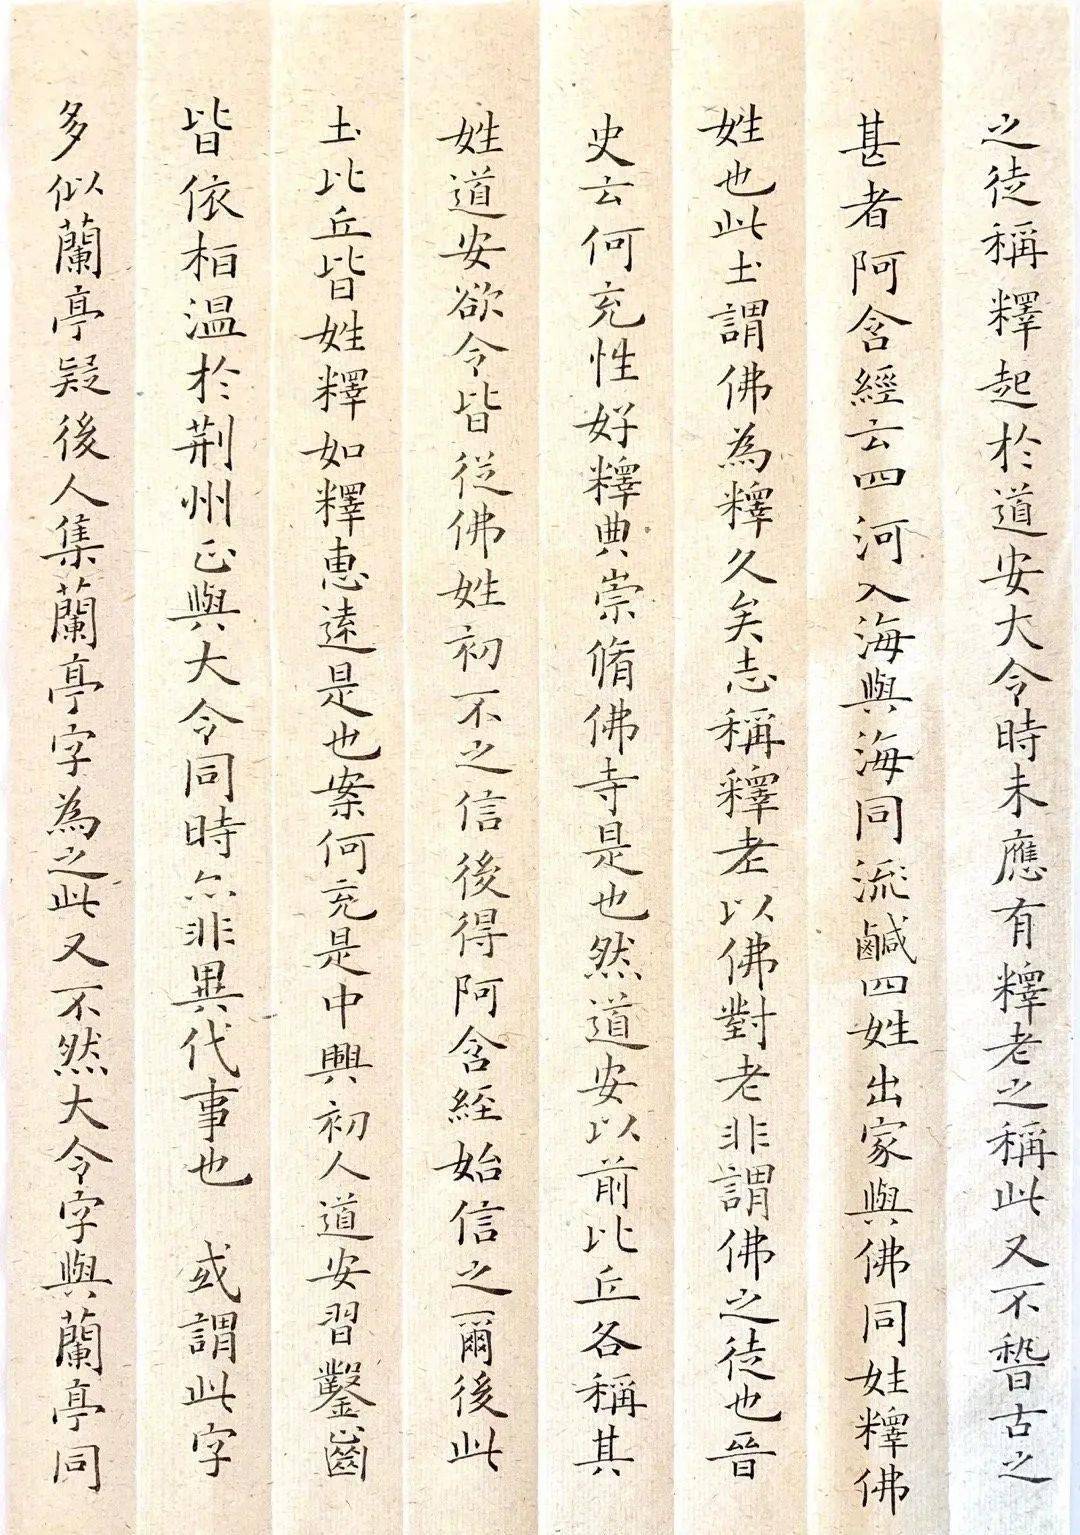 之徒稱釋起於道安大令時未應有釋老之稱此又不稽古之
甚者阿含經云四河入海與海同流鹹四姓出家與佛同姓釋佛
姓也此土謂佛為釋久矣志稱釋老以佛對老非謂佛之徒也晉
史云何充性好釋典崇脩佛寺是也然道安以前比丘各稱其
姓道安欲令皆從佛姓初不之信後得阿含經始信之爾後此
土比丘皆姓釋如釋惠遠是也案何充是中興初人道安習鑿齒
皆依桓溫於荆州正與大令同時亦非異代事也 或謂此字
多似蘭亭疑後人集蘭亭字為之此又不然大令字與蘭亭同